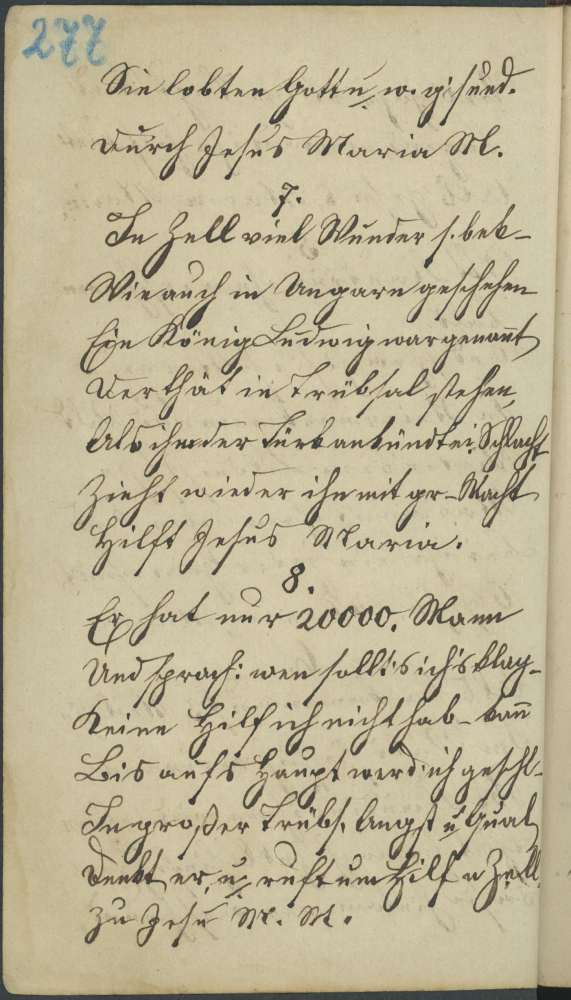 277
Sie lobten Gott u. w. g'sund.
Durch Jesus Maria M.
7.
In Zell viel Wunder s. bek-
Wie auch in Ungarn geschehen
Ein König Ludwig war genannt
Der thät in Trübsal stehen,
Als ihm der Türk ankündt ei. Schlacht
Zieht wieder ihn mit gr- Macht
Hilft Jesus Maria.
8.
Er hat nur 20000. Mann
Und sprach: wen sollt's ich's klag-
Keine Hilf ich nicht hab- kann
Bis aufs Haupt werd ich geschl-
In großer Trübs. Angst u Qual
Denkt er, u. ruft um Hilf n Zell
Zu Jesu M. M.